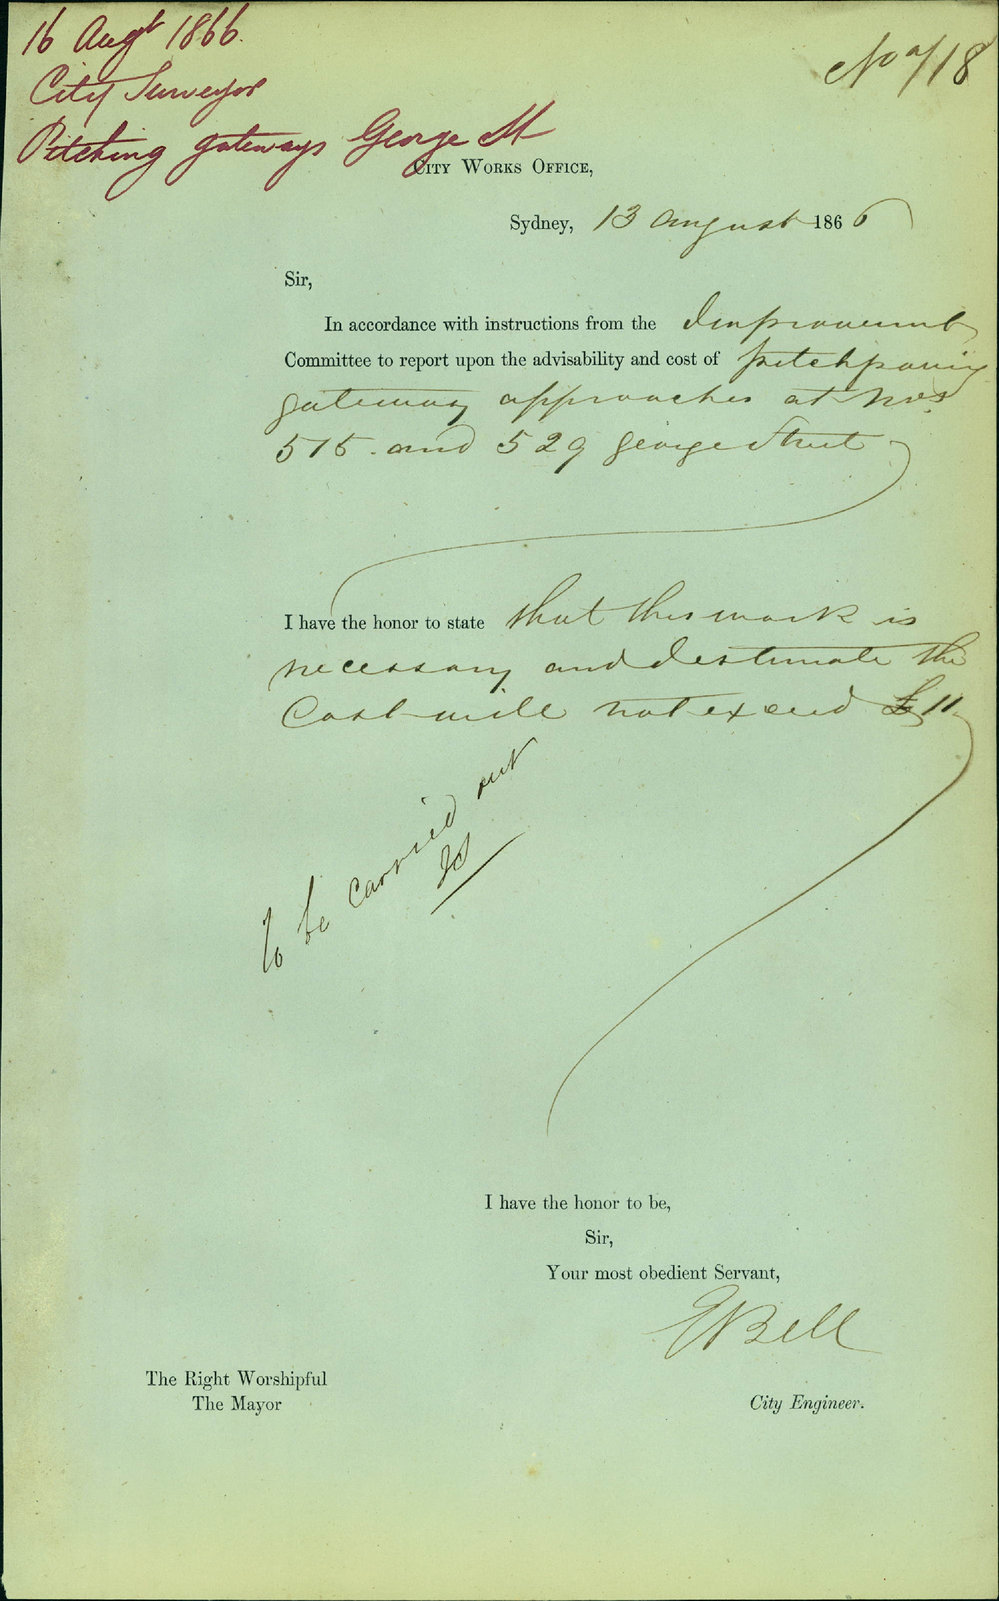 16 Augt 1866.
City Surveyor
Pitching gateways George St
No a/18
CITY WORKS OFFICE,
Sydney, 13 August 1866
Sir,
In accordance with instructions from the Improvement
Committee to report upon the advisability and cost of pitchpaving
gateway approaches at Nos
515 and 529 George Street
I have the honor to state that this work is
necessary and I estimate the
Cost will not exceed £11
To be carried out
I have the honor to be,
Sir,
Your most obedient Servant,
EBell
The Right Worshipful
The Mayor
City Engineer.